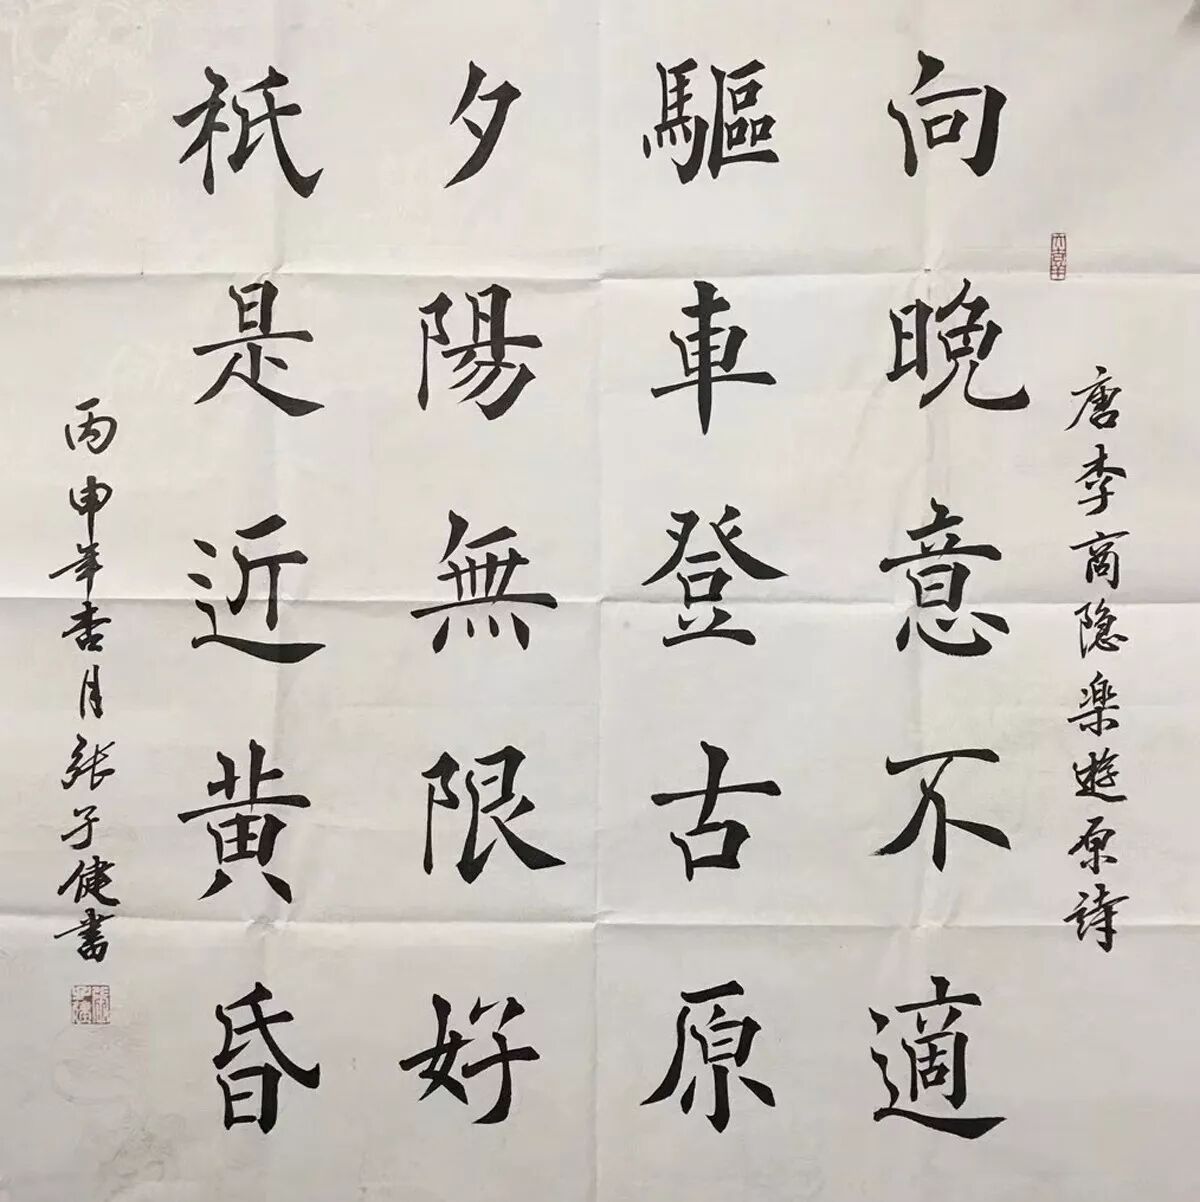 唐李商隐楽遊原詩
向晚意不適
驅車登古原
夕陽無限好
祇是近黄昏
丙申年杏月張子健書
大吉羊